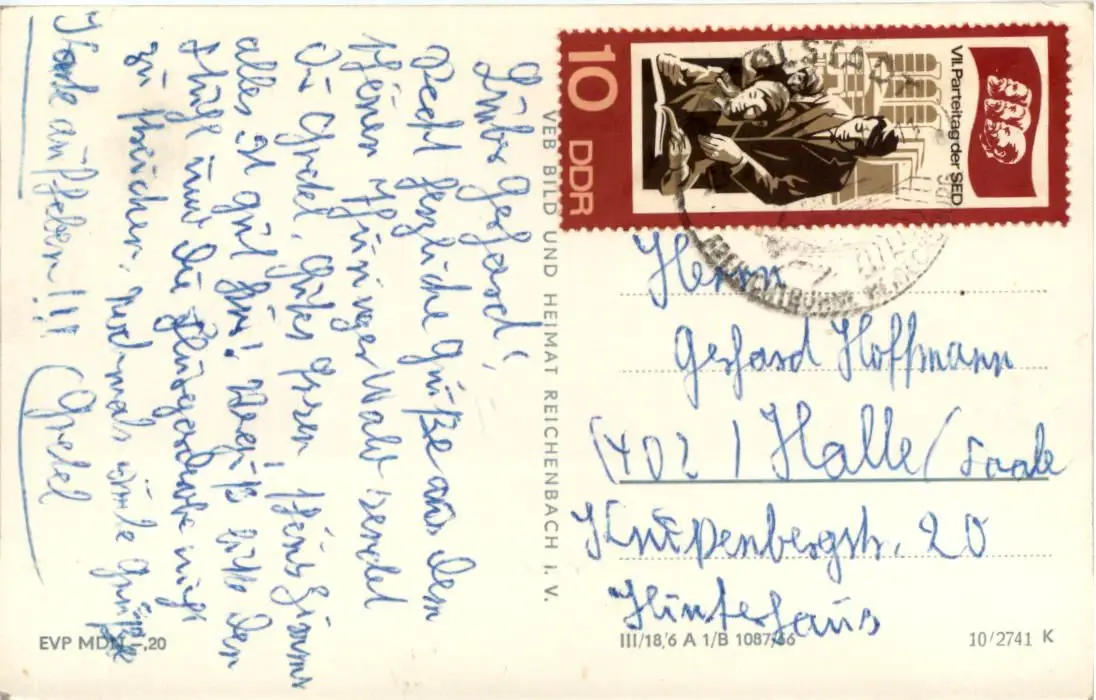 Lieber Gerhard!
Recht herzliche Grüße aus dem
schönen Thüringer Wald sendet
Dir Gretel. Gutes Essen, schöne Zimmer
alles ist gut hier! Vergiß bitte den
und die nicht
zu nochmals viele Grüße
Karte aufheben!!! Gretel
EVP MDN -,20
VEB BILD UND HEIMAT REICHENBACH I. V.
VII. Parteitag der SED
10 DDR
Herrn
Gerhard Hoffmann
(402) Halle/Saale
20
Hinterhaus
III/18/6 A 1/B 1087/66
10/2741 K